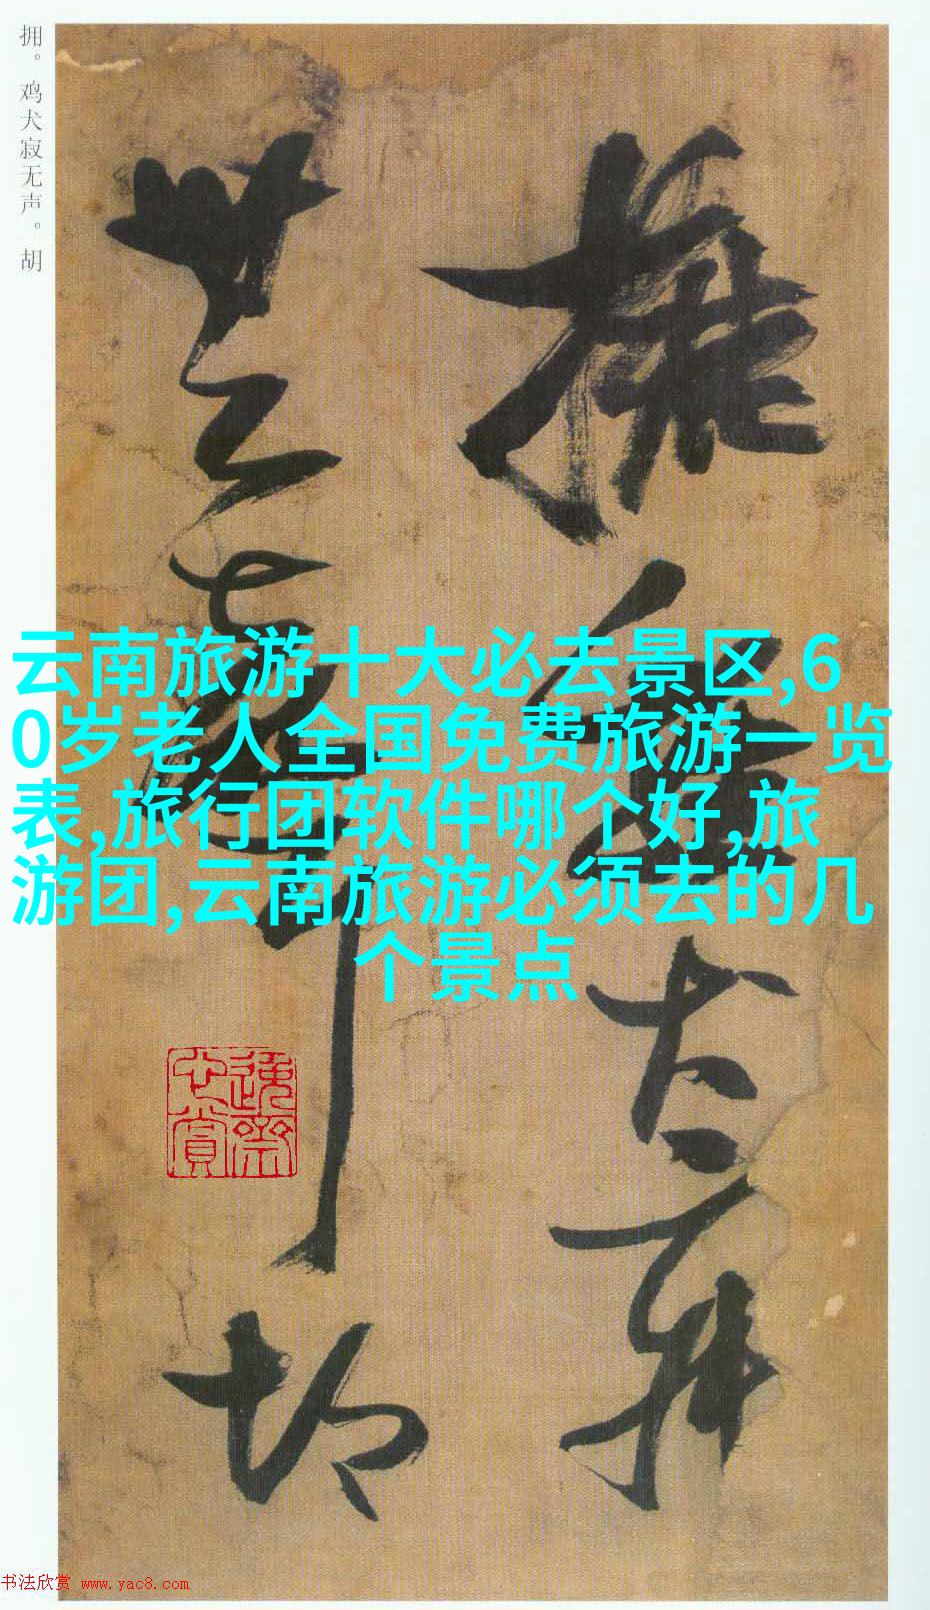 拥。鸡犬寂无声。胡
拥。鸡犬
寂无声。胡
云南旅游十大必去景区,6
0岁老人全国免费旅游一览
表,旅行团软件哪个好,旅
游团,云南旅游必须去的几
个景点
书法欣赏 www.yac8.com